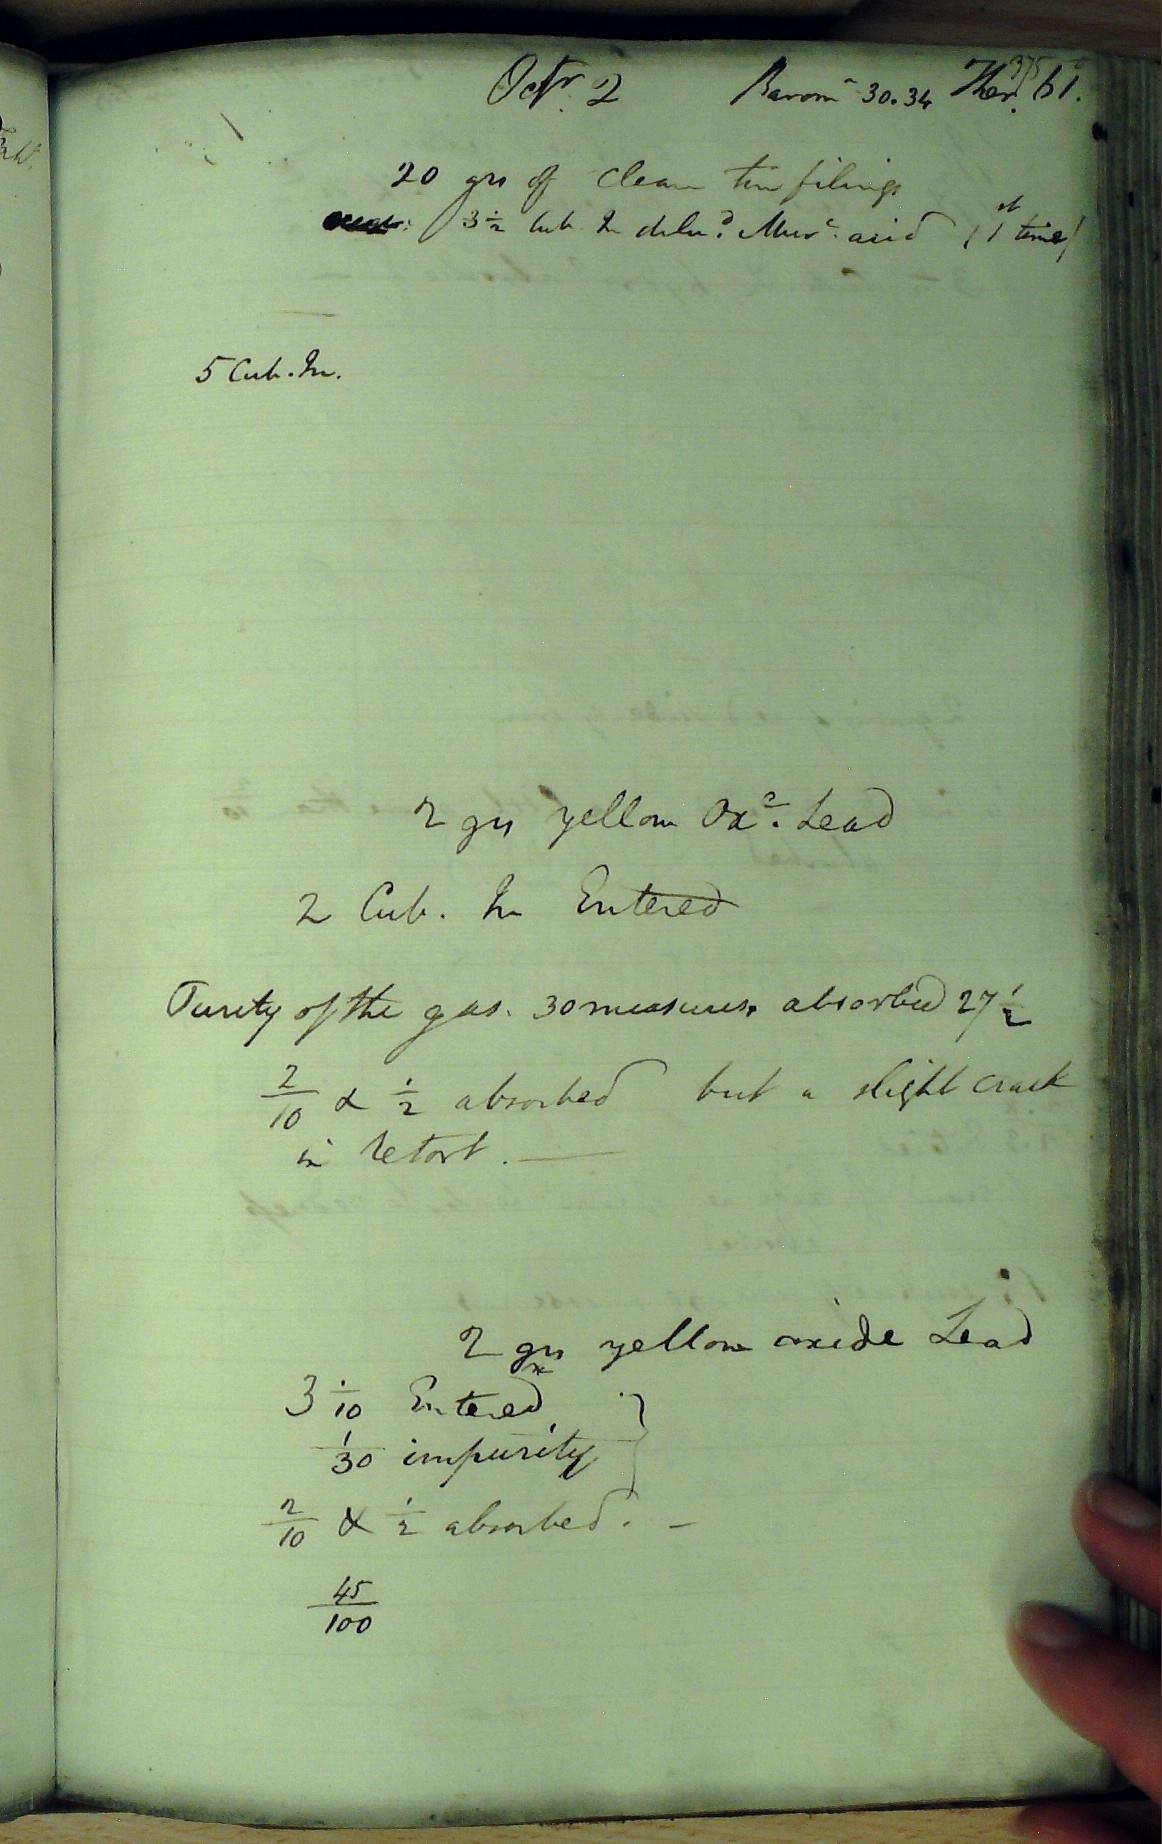 375
Octr. 2 Baromr 30.34 Ther. 61°.
20 grs of clean tin filings
3 1/2 Cub In dilud. Murc. acid (1st time)
5 Cub. In.
2 grs yellow Oxe. Lead
2 Cub. In Entered
Purity of the gas. 30 measures absorbed 27 1/2
2/10 & 1/2 absorbed but a slight crack
in retort. —
2 grs yellow oxide Lead
3 1/10 Entered
1/30 impurity
2/10 & 1/2 absorbed. –
45/100